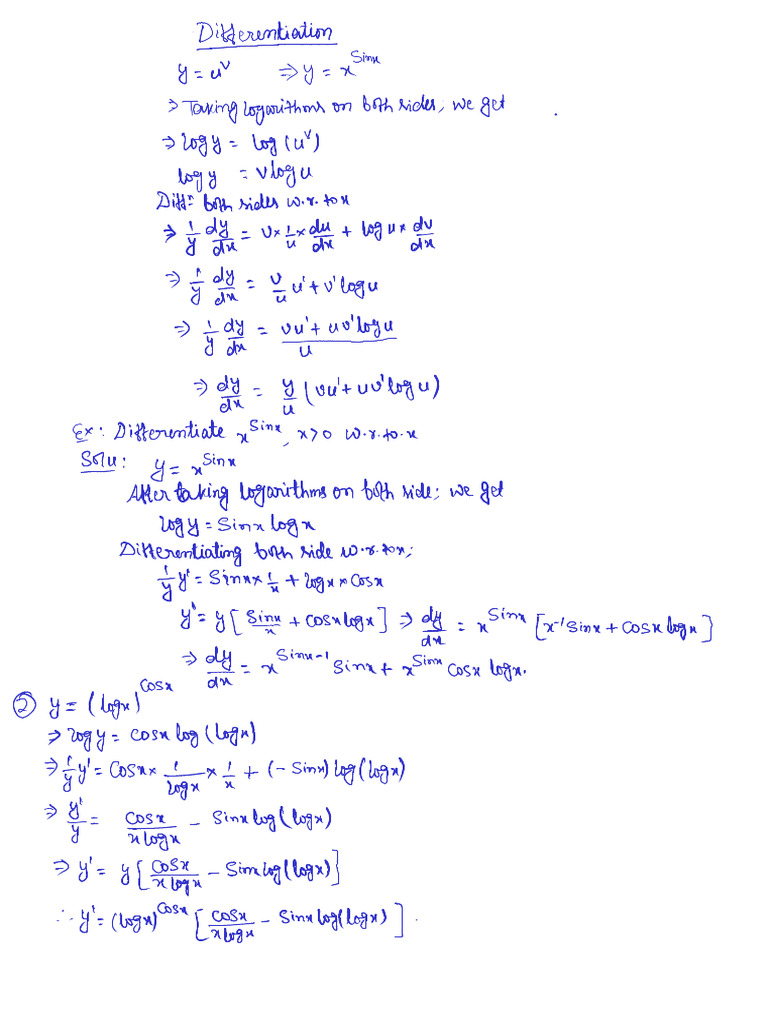 Differentiation
y = u^v ⇒ y = x^Sinx
⇒ Taking logarithms on both sides, we get
⇒ logy = log (u^v)
logy = vlogu
Diff= both sides w.r.to x
⇒ 1/y dy/dx = v × 1/u × du/dx + logu × dv/dx
⇒ 1/y dy/dx = v/u u' + v' logu
⇒ 1/y dy/dx = (vu' + uv' logu)/u
⇒ dy/dx = y/u (vu' + uv' logu)
Ex: Differentiate x^Sinx, x>0 w.r.to.x
Solu: y = x^Sinx
After taking logarithms on both side; we get
logy = Sinx logx
Differentiating both side w.r.to x;
1/y y' = Sinx × 1/x + logx × Cosx
y' = y [Sinx/x + Cosx logx] ⇒ dy/dx = x^Sinx [x^-1 Sinx + Cosx logx]
⇒ dy/dx = x^Sinx-1 Sinx + x^Sinx Cosx logx.
② y = (logx)^Cosx
⇒ logy = Cosx log (logx)
⇒ 1/y y' = Cosx × 1/logx × 1/x + (- Sinx) log (logx)
⇒ y'/y = Cosx/xlogx - Sinx log (logx)
⇒ y' = y [Cosx/xlogx - Sinx log (logx)]
∴ y' = (logx)^Cosx [Cosx/xlogx - Sinx log(logx)].